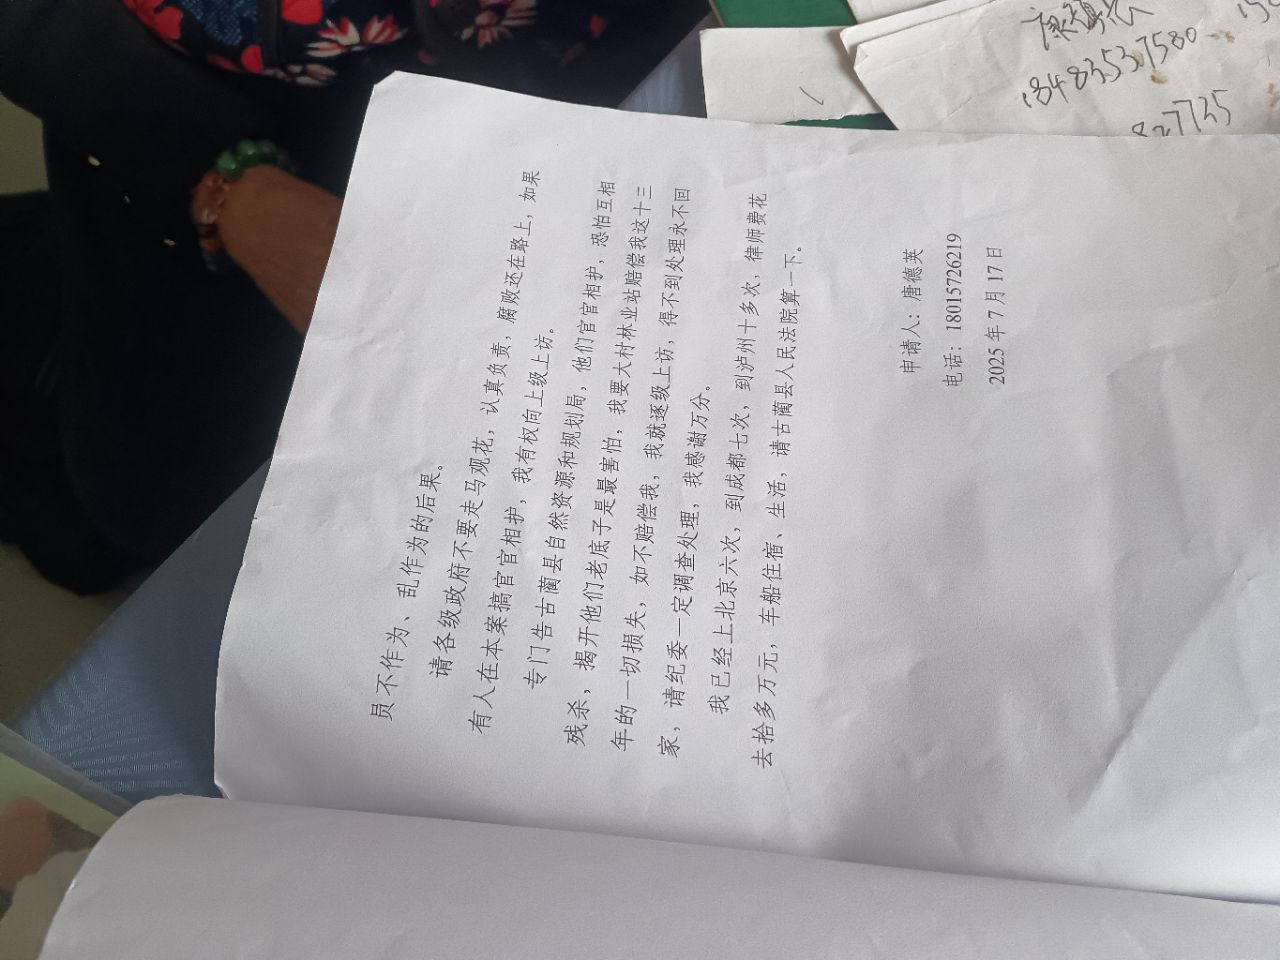 员不作为、乱作为的后果。
请各级政府不要走马观花，认真负责，腐败还在路上，如果
有人在本案搞官官相护，我有权向上级上访。
专门告古蔺县自然资源和规划局，他们官官相护，恐怕互相
残杀，揭开他们老底子是最害怕，我要大村林业站赔偿我这十三
年的一切损失，如不赔偿我，我就逐级上访，得不到处理永不回
家，请纪委一定调查处理，我感谢万分。
我已经上北京六次，到成都七次，到泸州十多次，律师费花
去拾多万元，车船住宿、生活，请古蔺县人民法院算一下。
申请人：唐德英
电话：18015726219
2025年7月17日
18483537580
827735